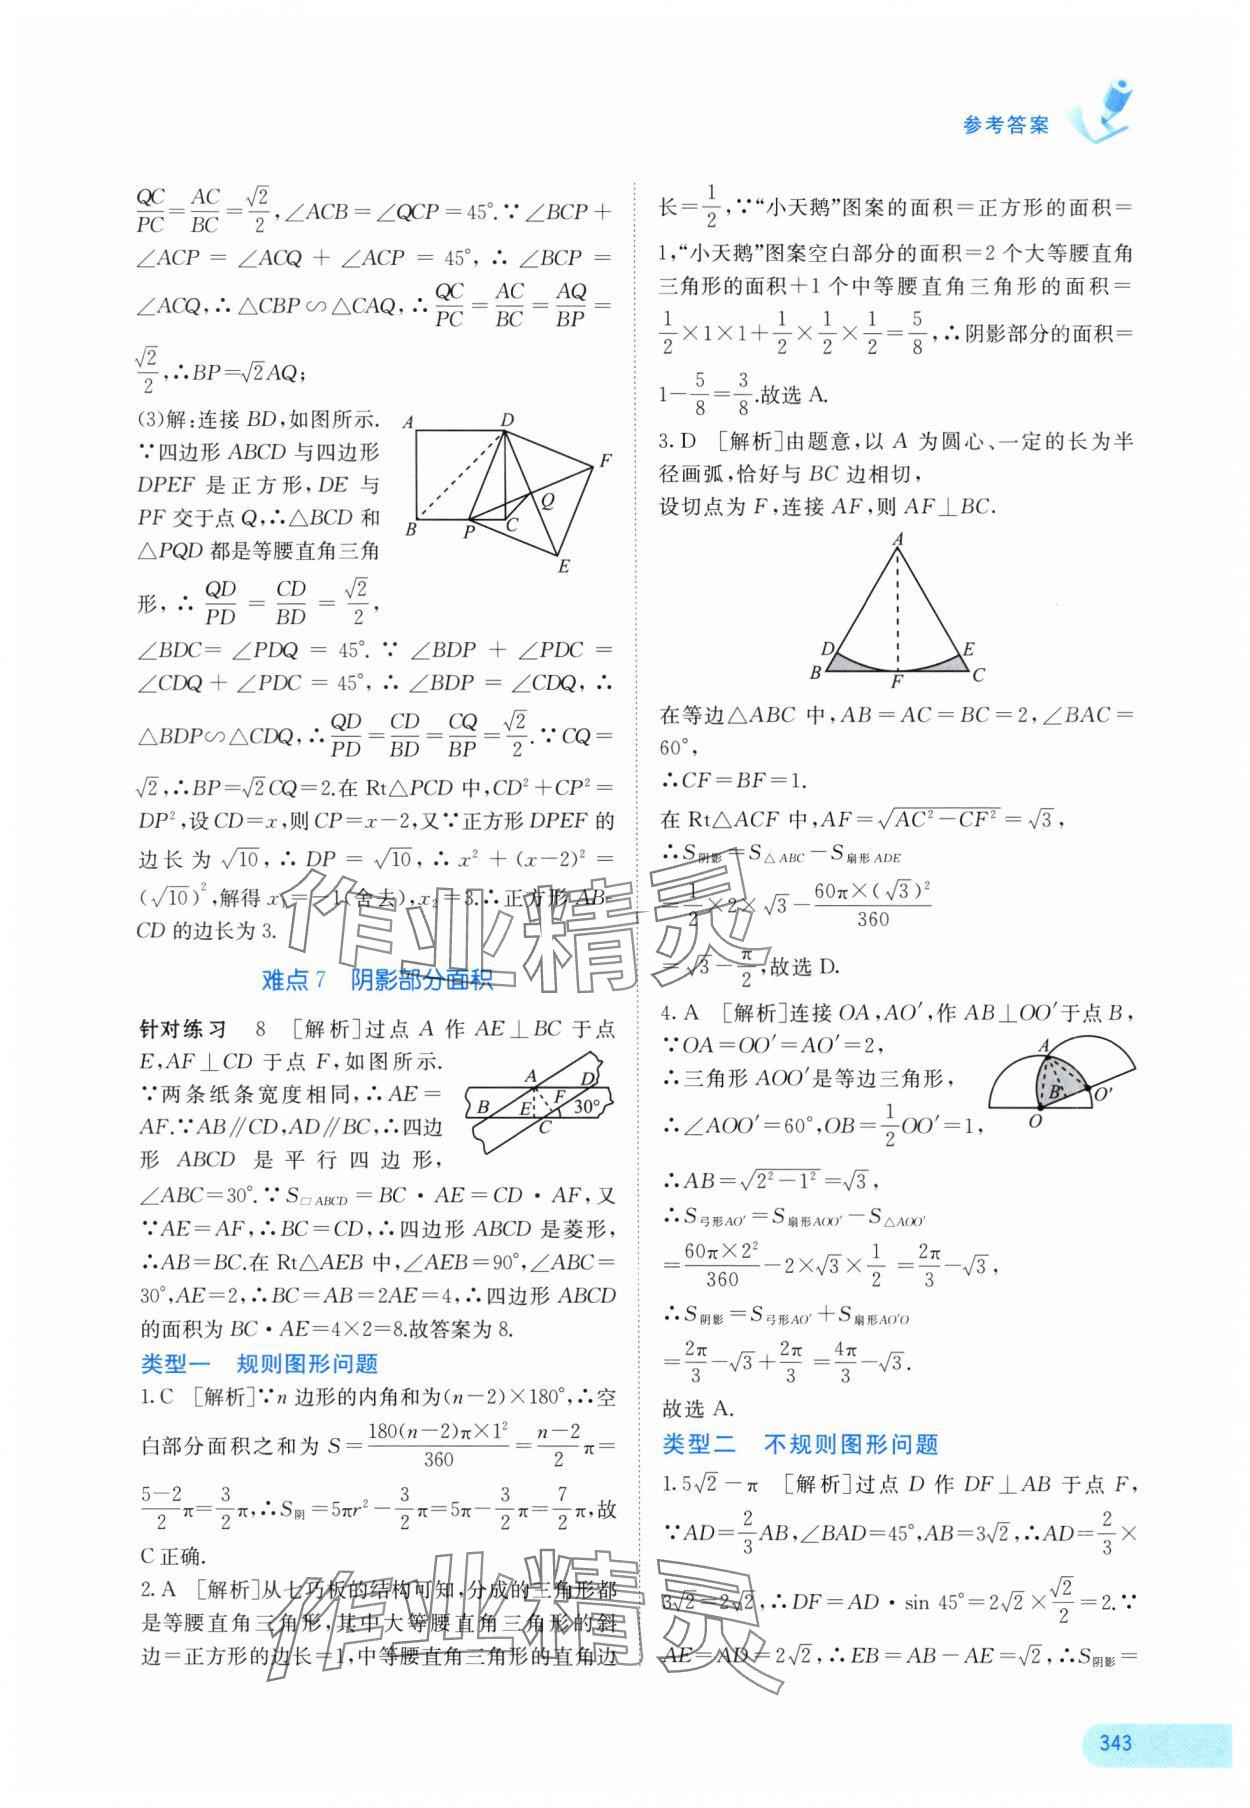 参考答案
QC/PC=AC/BC=√2/2,∠ACB=∠QCP=45°.∵∠BCP+
∠ACP=∠ACQ+∠ACP=45°,∴∠BCP=
∠ACQ,∴△CBP∽△CAQ,∴QC/PC=AC/BC=AQ/BP=
√2/2,∴BP=√2AQ;
(3)解:连接 BD,如图所示.
∵四边形 ABCD 与四边形
DPEF 是正方形,DE 与
PF 交于点 Q,∴△BCD 和
△PQD 都是等腰直角三角
形,∴QD/PD=CD/BD=√2/2,
A D F Q B P C E
∠BDC=∠PDQ=45°.∵∠BDP+∠PDC=
∠CDQ+∠PDC=45°,∴∠BDP=∠CDQ,∴
△BDP∽△CDQ,∴QD/PD=CD/BD=CQ/BP=√2/2.∵CQ=
√2,∴BP=√2CQ=2.在 Rt△PCD 中,CD²+CP²=
DP²,设 CD=x,则 CP=x-2,又∵正方形 DPEF 的
边长为√10,∴DP=√10,∴x²+(x-2)²=
(√10)²,解得 x₁=-1(舍去),x₂=3.∴正方形 AB-
CD 的边长为 3.
难点 7 阴影部分面积
针对练习 8 [解析]过点 A 作 AE⊥BC 于点
E,AF⊥CD 于点 F,如图所示.
∵两条纸条宽度相同,∴AE=
AF.∵AB∥CD,AD∥BC,∴四边
形 ABCD 是平行四边形,
A D B E F 30° C
∠ABC=30°.∵S□ABCD=BC·AE=CD·AF,又
∵AE=AF,∴BC=CD,∴四边形 ABCD 是菱形,
∴AB=BC.在 Rt△AEB 中,∠AEB=90°,∠ABC=
30°,AE=2,∴BC=AB=2AE=4,∴四边形 ABCD
的面积为 BC·AE=4×2=8.故答案为 8.
类型一 规则图形问题
1.C [解析]∵n 边形的内角和为(n-2)×180°,∴空
白部分面积之和为 S=180(n-2)π×1²/360=n-2/2π=
5-2/2π=3/2π,∴S阴=5πr²-3/2π=5π-3/2π=7/2π,故
C 正确.
2.A [解析]从七巧板的结构可知,分成的三角形都
是等腰直角三角形,其中大等腰直角三角形的斜
边=正方形的边长=1,中等腰直角三角形的直角边
长=1/2,∵“小天鹅”图案的面积=正方形的面积=
1,“小天鹅”图案空白部分的面积=2 个大等腰直角
三角形的面积+1 个中等腰直角三角形的面积=
1/2×1×1+1/2×1/2×1/2=5/8,∴阴影部分的面积=
1-5/8=3/8.故选 A.
3.D [解析]由题意,以 A 为圆心、一定的长为半
径画弧,恰好与 BC 边相切,
设切点为 F,连接 AF,则 AF⊥BC.
A D E B F C
在等边△ABC 中,AB=AC=BC=2,∠BAC=
60°,
∴CF=BF=1.
在 Rt△ACF 中,AF=√AC²-CF²=√3,
∴S阴影=S△ABC-S扇形ADE
=1/2×2×√3-60π×(√3)²/360
=√3-π/2,故选 D.
4.A [解析]连接 OA,AO′,作 AB⊥OO′于点 B,
∵OA=OO′=AO′=2,
∴三角形 AOO′是等边三角形,
∴∠AOO′=60°,OB=1/2OO′=1,
A B O′ O
∴AB=√2²-1²=√3,
∴S弓形AO′=S扇形AOO′-S△AOO′
=60π×2²/360-2×√3×1/2=2π/3-√3,
∴S阴影=S弓形AO′+S扇形AO′O
=2π/3-√3+2π/3=4π/3-√3.
故选 A.
类型二 不规则图形问题
1.5√2-π [解析]过点 D 作 DF⊥AB 于点 F,
∵AD=2/3AB,∠BAD=45°,AB=3√2,∴AD=2/3×
3√2=2√2,∴DF=AD·sin 45°=2√2×√2/2=2.∵
AE=AD=2√2,∴EB=AB-AE=√2,∴S阴影=
作业精灵
作业精灵
343